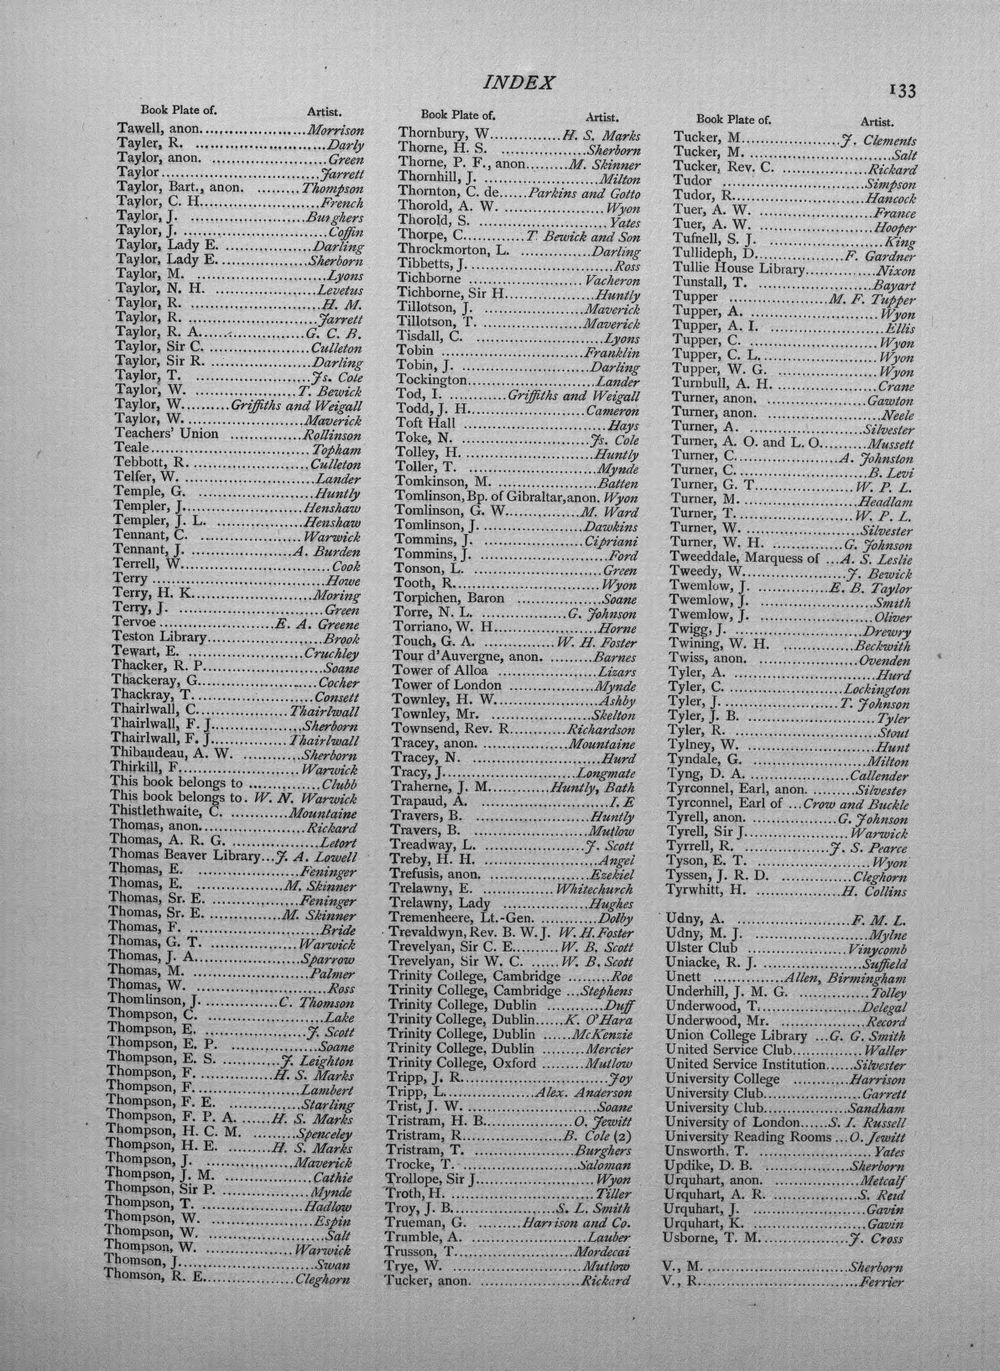 INDEX
133
Book Plate of. Artist.
Tawell, anon. Morrison
Tayler, R. Darly
Taylor, anon. Green
Taylor Jarrett
Taylor, Bart., anon. Thompson
Taylor, C. H. French
Taylor, J. Burghers
Taylor, J. Coffin
Taylor, Lady E. Darling
Taylor, Lady E. Sherborn
Taylor, M. Lyons
Taylor, N. H. Levetus
Taylor, R. H. M.
Taylor, R. Jarrett
Taylor, R. A. G. C. B.
Taylor, Sir C. Culleton
Taylor, Sir R. Darling
Taylor, T. Js. Cole
Taylor, W. T. Bewick
Taylor, W. Griffiths and Weigall
Taylor, W. Maverick
Teachers' Union Rollinson
Teale Topham
Tebbott, R. Culleton
Telfer, W. Lander
Temple, G. Huntly
Templer, J. Henshaw
Templer, J. L. Henshaw
Tennant, C. Warwick
Tennant, J. A. Burden
Terrell, W. Cook
Terry Howe
Terry, H. K. Moring
Terry, J. Green
Tervoe E. A. Greene
Teston Library Brook
Tewart, E. Cruchley
Thacker, R. P. Soane
Thackeray, G. Cocher
Thackray, T. Consett
Thairlwall, C. Thairlwall
Thairlwall, F. J. Sherborn
Thairlwall, F. J. Thairlwall
Thibaudeau, A. W. Sherborn
Thirkill, F. Warwick
This book belongs to Clubb
This book belongs to. W. N. Warwick
Thistlethwaite, C. Mountaine
Thomas, anon. Rickard
Thomas, A. R. G. Letort
Thomas Beaver Library...J. A. Lowell
Thomas, E. Feninger
Thomas, E. M. Skinner
Thomas, Sr. E. Feninger
Thomas, Sr. E. M. Skinner
Thomas, F. Bride
Thomas, G. T. Warwick
Thomas, J. A. Sparrow
Thomas, M. Palmer
Thomas, W. Ross
Thomlinson, J. C. Thomson
Thompson, C. Lake
Thompson, E. J. Scott
Thompson, E. P. Soane
Thompson, E. S. J. Leighton
Thompson, F. H. S. Marks
Thompson, F. Lambert
Thompson, F. E. Starling
Thompson, F. P. A. H. S. Marks
Thompson, H. C. M. Spenceley
Thompson, H. E. H. S. Marks
Thompson, J. Maverick
Thompson, J. M. Cathie
Thompson, Sir P. Mynde
Thompson, T. Hadlow
Thompson, W. Espin
Thompson, W. Salt
Thompson, W. Warwick
Thomson, J. Swan
Thomson, R. E. Cleghorn
Book Plate of. Artist.
Thornbury, W. H. S. Marks
Thorne, H. S. Sherborn
Thorne, P. F., anon. M. Skinner
Thornhill, J. Milton
Thornton, C. de Parkins and Gotto
Thorold, A. W. Wyon
Thorold, S. Yates
Thorpe, C. T Bewick and Son
Throckmorton, L. Darling
Tibbetts, J. Ross
Tichborne Vacheron
Tichborne, Sir H. Huntly
Tillotson, J. Maverick
Tillotson, T. Maverick
Tisdall, C. Lyons
Tobin Franklin
Tobin, J. Darling
Tockington Lander
Tod, I. Griffiths and Weigall
Todd, J. H. Cameron
Toft Hall Hays
Toke, N. Js. Cole
Tolley, H. Huntly
Toller, T. Mynde
Tomkinson, M. Batten
Tomlinson, Bp. of Gibraltar, anon. Wyon
Tomlinson, G. W. M. Ward
Tomlinson, J. Dawkins
Tommins, J. Cipriani
Tommins, J. Ford
Tonson, L. Green
Tooth, R. Wyon
Torpichen, Baron Soane
Torre, N. L. G. Johnson
Torriano, W. H. Horne
Touch, G. A. W. H. Foster
Tour d'Auvergne, anon. Barnes
Tower of Alloa Lizars
Tower of London Mynde
Townley, H. W. Ashby
Townley, Mr. Skelton
Townsend, Rev. R. Richardson
Tracey, anon. Mountaine
Tracey, N. Hurd
Tracy, J. Longmate
Traherne, J. M. Huntly, Bath
Trapaud, A. I. E
Travers, B. Huntly
Travers, B. Mutlow
Treadway, L. J. Scott
Treby, H. H. Angel
Trefusis, anon. Ezekiel
Trelawny, E. Whitechurch
Trelawny, Lady Hughes
Tremenheere, Lt.-Gen. Dolby
Trevaldwyn, Rev. B. W. J. W. H. Foster
Trevelyan, Sir C. E. W. B. Scott
Trevelyan, Sir W. C. W. B. Scott
Trinity College, Cambridge Roe
Trinity College, Cambridge ...Stephens
Trinity College, Dublin Duff
Trinity College, Dublin......K. O'Hara
Trinity College, Dublin McKenzie
Trinity College, Dublin Mercier
Trinity College, Oxford Mutlow
Tripp, J. R. Joy
Tripp, L. Alex. Anderson
Trist, J. W. Soane
Tristram, H. B. O. Jewitt
Tristram, R. B. Cole (2)
Tristram, T. Burghers
Trocke, T. Saloman
Trollope, Sir J. Wyon
Troth, H. Tiller
Troy, J. B. S. L. Smith
Trueman, G. Harrison and Co.
Trumble, A. Lauber
Trusson, T. Mordecai
Trye, W. Mutlow
Tucker, anon. Rickard
Book Plate of. Artist.
Tucker, M. J. Clements
Tucker, M. Salt
Tucker, Rev. C. Rickard
Tudor Simpson
Tudor, R. Hancock
Tuer, A. W. France
Tuer, A. W. Hooper
Tufnell, S. J. King
Tullideph, D. F. Gardner
Tullie House Library Nixon
Tunstall, T. Bayart
Tupper M. F. Tupper
Tupper, A. Wyon
Tupper, A. I. Ellis
Tupper, C. Wyon
Tupper, C. L. Wyon
Tupper, W. G. Wyon
Turnbull, A. H. Crane
Turner, anon. Gawton
Turner, anon. Neele
Turner, A. Silvester
Turner, A. O. and L. O. Mussett
Turner, C. A. Johnston
Turner, C. B. Levi
Turner, G. T. W. P. L.
Turner, M. Headlam
Turner, T. W. P. L.
Turner, W. Silvester
Turner, W. H. G. Johnson
Tweeddale, Marquess of ...A. S. Leslie
Tweedy, W. J. Bewick
Twemlow, J. E. B. Taylor
Twemlow, J. Smith
Twemlow, J. Oliver
Twigg, J. Drewry
Twining, W. H. Beckwith
Twiss, anon. Ovenden
Tyler, A. Hurd
Tyler, C. Lockington
Tyler, J. T. Johnson
Tyler, J. B. Tyler
Tyler, R. Stout
Tylney, W. Hunt
Tyndale, G. Milton
Tyng, D. A. Callender
Tyrconnel, Earl, anon. Silvester
Tyrconnel, Earl of ...Crow and Buckle
Tyrell, anon. G. Johnson
Tyrell, Sir J. Warwick
Tyrrell, R. J. S. Pearce
Tyson, E. T. Wyon
Tyssen, J. R. D. Cleghorn
Tyrwhitt, H. H. Collins
Udny, A. F. M. L.
Udny, M. J. Mylne
Ulster Club Vinycomb
Uniacke, R. J. Suffield
Unett Allen, Birmingham
Underhill, J. M. G. Tolley
Underwood, T. Delegal
Underwood, Mr. Record
Union College Library ...G. G. Smith
United Service Club Waller
United Service Institution Silvester
University College Harrison
University Club Garrett
University Club Sandham
University of London S. I. Russell
University Reading Rooms ...O. Jewitt
Unsworth, T. Yates
Updike, D. B. Sherborn
Urquhart, anon. Metcalf
Urquhart, A. R. S. Reid
Urquhart, J. Gavin
Urquhart, K. Gavin
Usborne, T. M. J. Cross
V., M. Sherborn
V., R. Ferrier